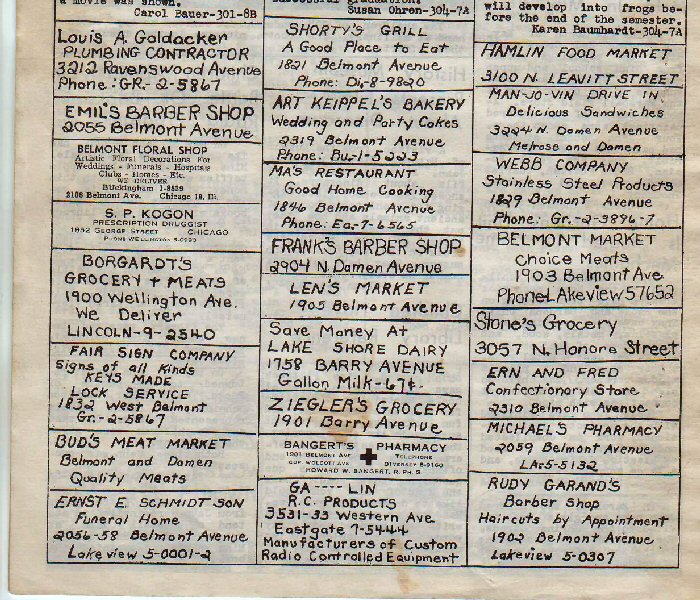 a movie was shown.
Carol Bauer-301-8B
Louis A. Goldacker
PLUMBING CONTRACTOR
3212 Ravenswood Avenue
Phone: GR.- 2-5867
EMIL'S BARBER SHOP
2055 Belmont Avenue
BELMONT FLORAL SHOP
Artistic Floral Decorations For
Weddings - Funerals - Hospitals
Clubs - Homes - Etc.
WE DELIVER
BUckingham 1-8829
2108 Belmont Ave. Chicago 18, Ill.
S. P. KOGON
PRESCRIPTION DRUGGIST
1852 GEORGE STREET CHICAGO
PHONE WELLINGTON
BORGARDT'S
GROCERY + MEATS
1900 Wellington Ave.
We Deliver
LINCOLN-9-2540
FAIR SIGN COMPANY
Signs of all Kinds
KEYS MADE
LOCK SERVICE
1832 West Belmont
Gr.-2-5867
BUD'S MEAT MARKET
Belmont and Damen
Quality Meats
ERNST E. SCHMIDT SON
Funeral Home
2056-58 Belmont Avenue
Lakeview 5-0001-2
Susan Ohren-304-7A
SHORTY'S GRILL
A Good Place to Eat
1821 Belmont Avenue
Phone: Di.-8-9820
ART KEIPPEL'S BAKERY
Wedding and Party Cakes
2319 Belmont Avenue
Phone: Bu-1-5223
MA'S RESTAURANT
Good Home Cooking
1846 Belmont Avenue
Phone: Ea.-7-6565
FRANK'S BARBER SHOP
2904 N. Damen Avenue
LEN'S MARKET
1905 Belmont Avenue
Save Money At
LAKE SHORE DAIRY
1758 BARRY AVENUE
Gallon Milk-67¢.
ZIEGLER'S GROCERY
1901 Barry Avenue
BANGERT'S PHARMACY
1901 BELMONT AVE. TELEPHONE
COR. WOLCOTT AVE. DIVERSEY 8-9160
HOWARD W. BANGERT, R. PH. G.
GA---- LIN
R.C. PRODUCTS
3531-33 Western Ave.
Eastgate 7-5444
Manufacturers of Custom
Radio Controlled Equipment
will develop into frogs be-
fore the end of the semester.
Karen Baumhardt-304-7A
HAMLIN FOOD MARKET
3100 N. LEAVITT STREET
MAN-JO-VIN DRIVE IN
Delicious Sandwiches
3224 N. Damen Avenue
Melrose and Damen
WEBB COMPANY
Stainless Steel Products
1829 Belmont Avenue
Phone: Gr.-2-3896-7
BELMONT MARKET
Choice Meats
1903 Belmont Ave
Phone LAkeview 57652
Stone's Grocery
3057 N. Honore Street
ERN AND FRED
Confectionary Store
2310 Belmont Avenue
MICHAEL'S PHARMACY
2059 Belmont Avenue
LA:5-5132
RUDY GARAND'S
Barber Shop
Haircuts by Appointment
1902 Belmont Avenue
Lakeview 5-0307